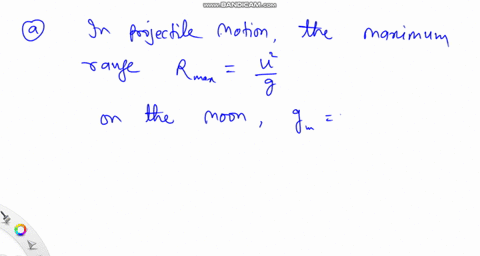 WWW.BANDICAM.COM
(a) In projectile motion, the maximum
range R_max = u²/g
on the moon, g_m =